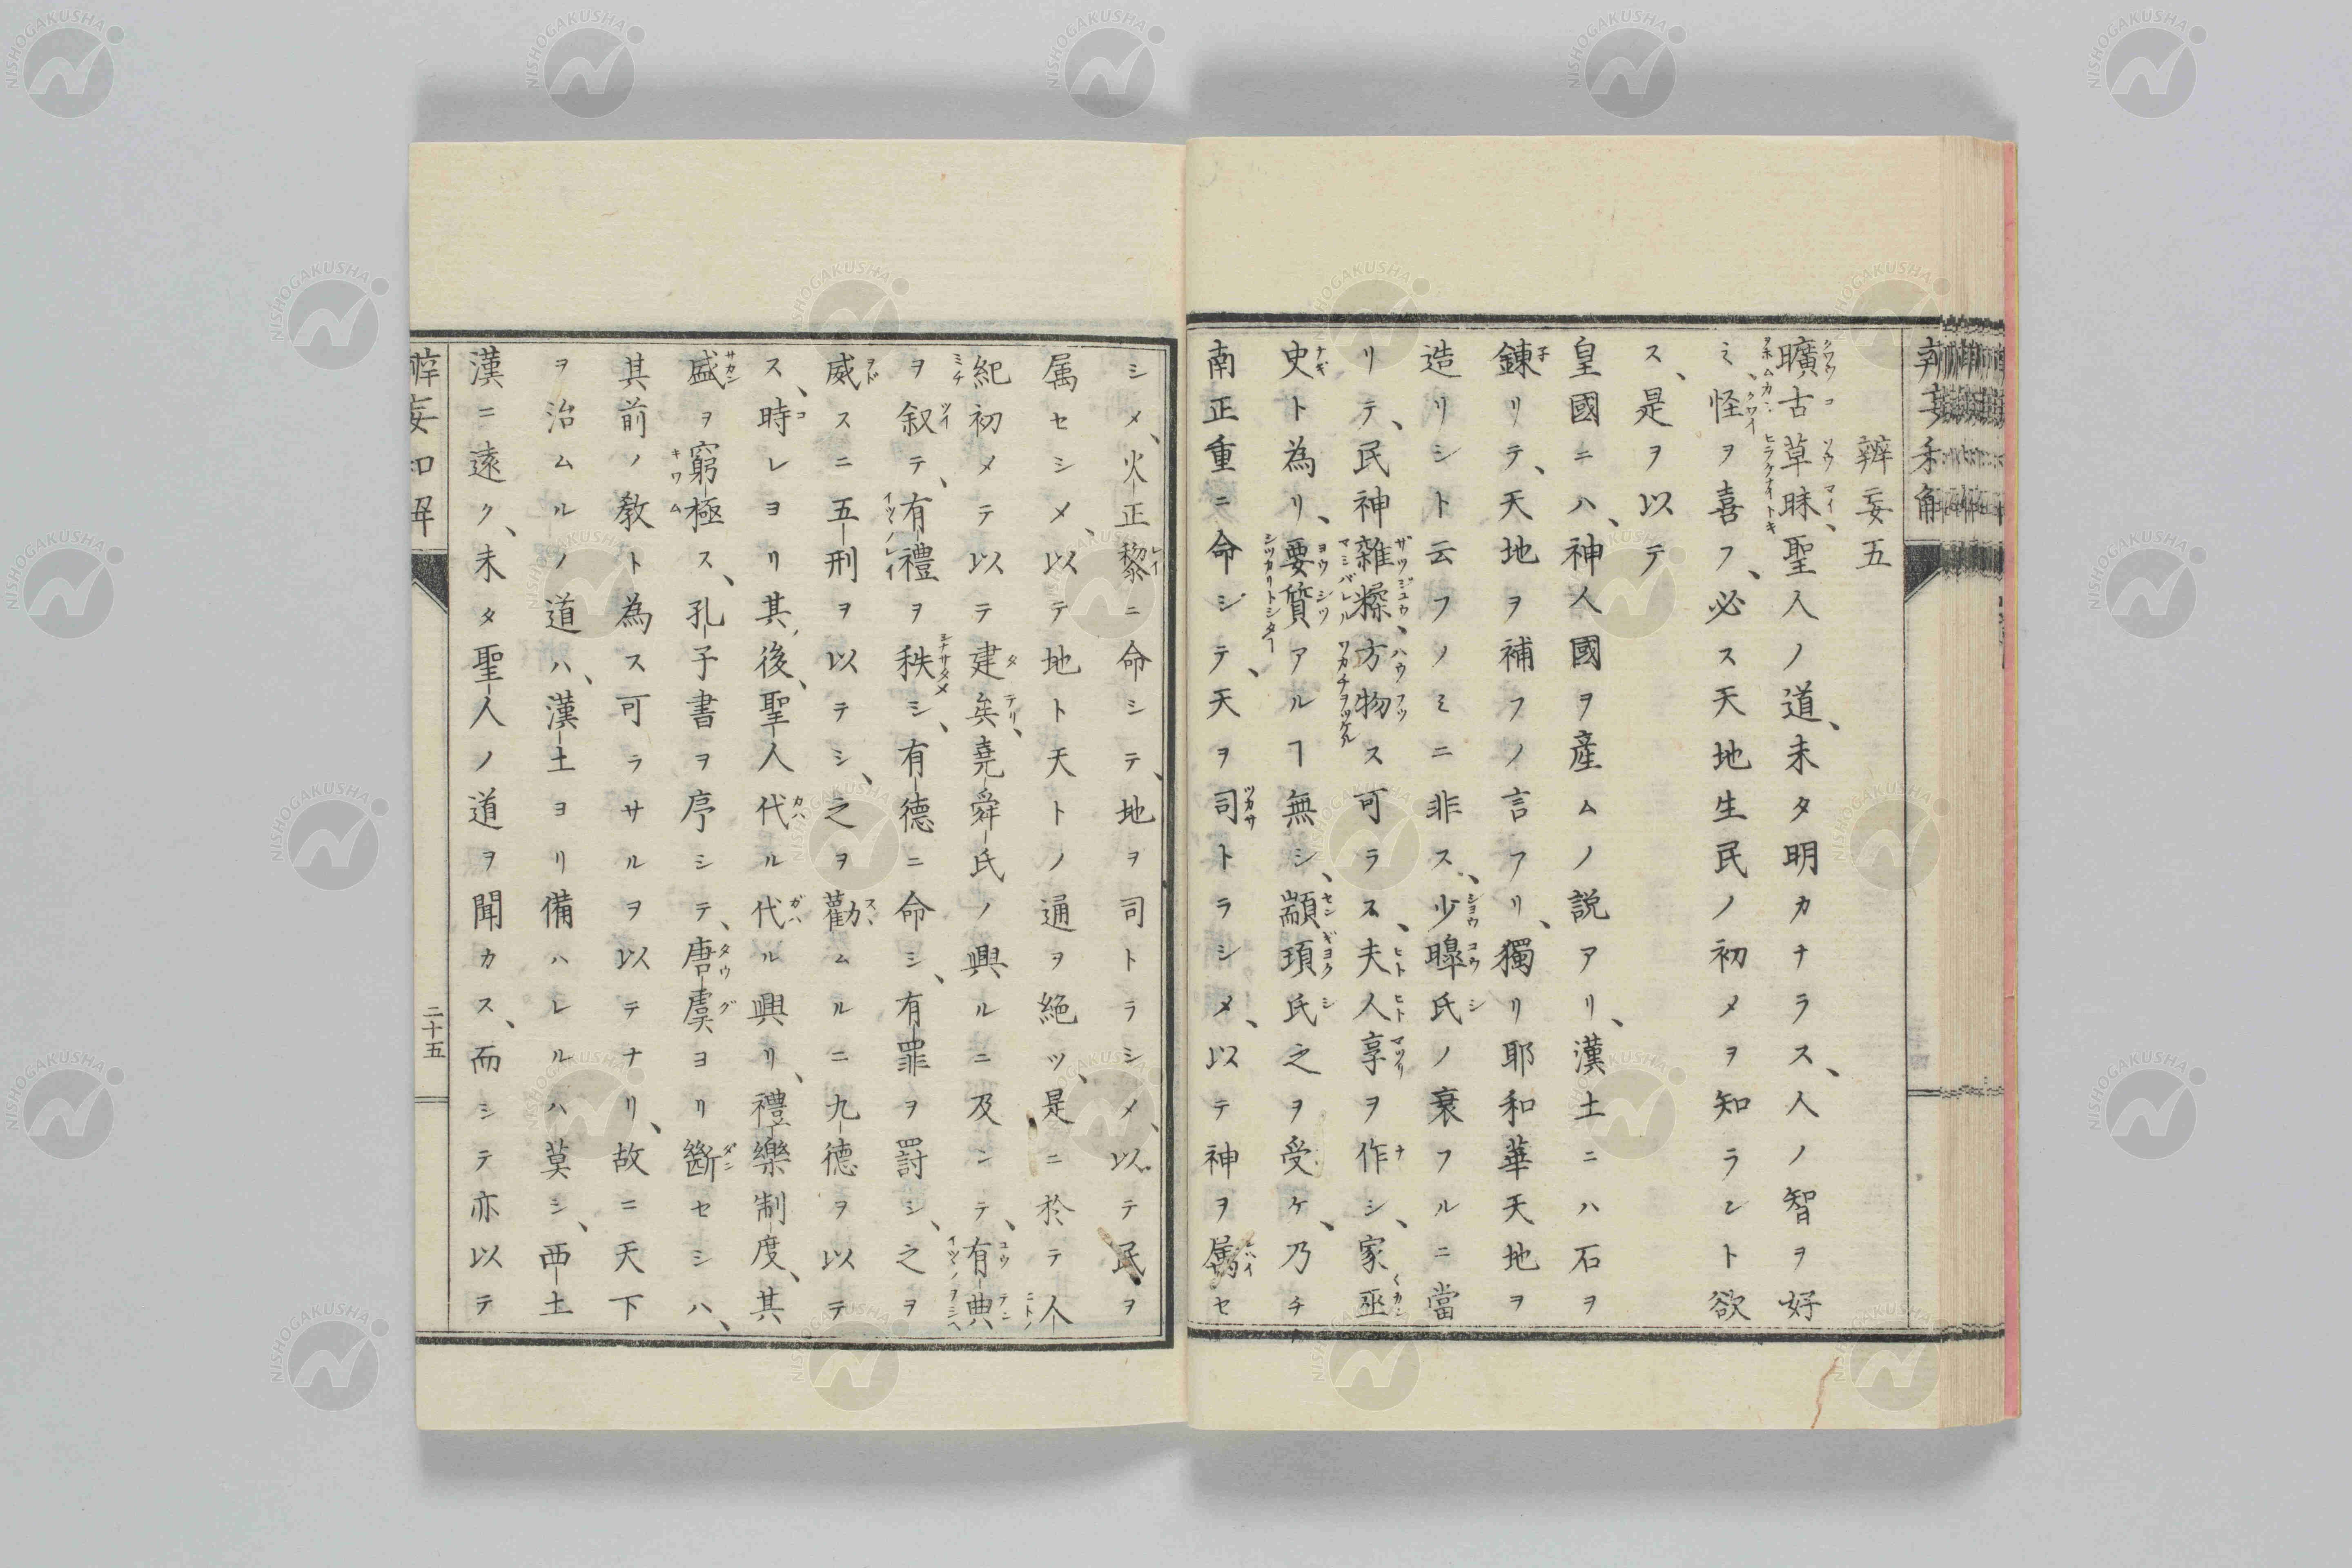 辨妄五
曠古草昧、聖人ノ道、未タ明カナラス、人ノ智ヲ好
ミ、怪ヲ喜フ、必ス天地生民ノ初メヲ知ラント欲
ス、是ヲ以テ
皇國ニハ、神人國ヲ産ムノ説アリ、漢土ニハ石ヲ
錬リテ、天地ヲ補フノ言アリ、獨リ耶和華天地ヲ
造リシト云フノミニ非ス、少皞氏ノ衰フルニ當
リテ、民神雜糅、方物ス可ラス、夫人享ヲ作シ、家巫
史ト為リ、要質アルヿ無シ、顓頊氏之ヲ受ケ、乃チ
南正重ニ命ジテ、天ヲ司トラシメ、以テ神ヲ属セ
シメ、火正黎ニ命シテ、地ヲ司トラシメ、以テ民ヲ
属セシメ、以テ地ト天トノ通ヲ絶ツ、是ニ於テ人
紀初メテ以テ建テリ、堯舜氏ノ興ルニ及ンテ、有典
ヲ叙テ、有禮ヲ秩シ、有德ニ命シ、有罪ヲ罸シ、之ヲ
威スニ五刑ヲ以テシ、之ヲ勸ムルニ九德ヲ以テ
ス、時レヨリ其後、聖人代ル代ル興リ、禮樂制度、其
盛ヲ窮極ス、孔子書ヲ序シテ、唐虞ヨリ斷セシハ、
其前ノ教ト為ス可ラサルヲ以テナリ、故ニ天下
ヲ治ムルノ道ハ、漢土ヨリ備ハレルハ莫シ、西土
漢ニ遠ク、未タ聖人ノ道ヲ聞カス、而シテ亦以テ
二十五
NISHOGAKUSHA